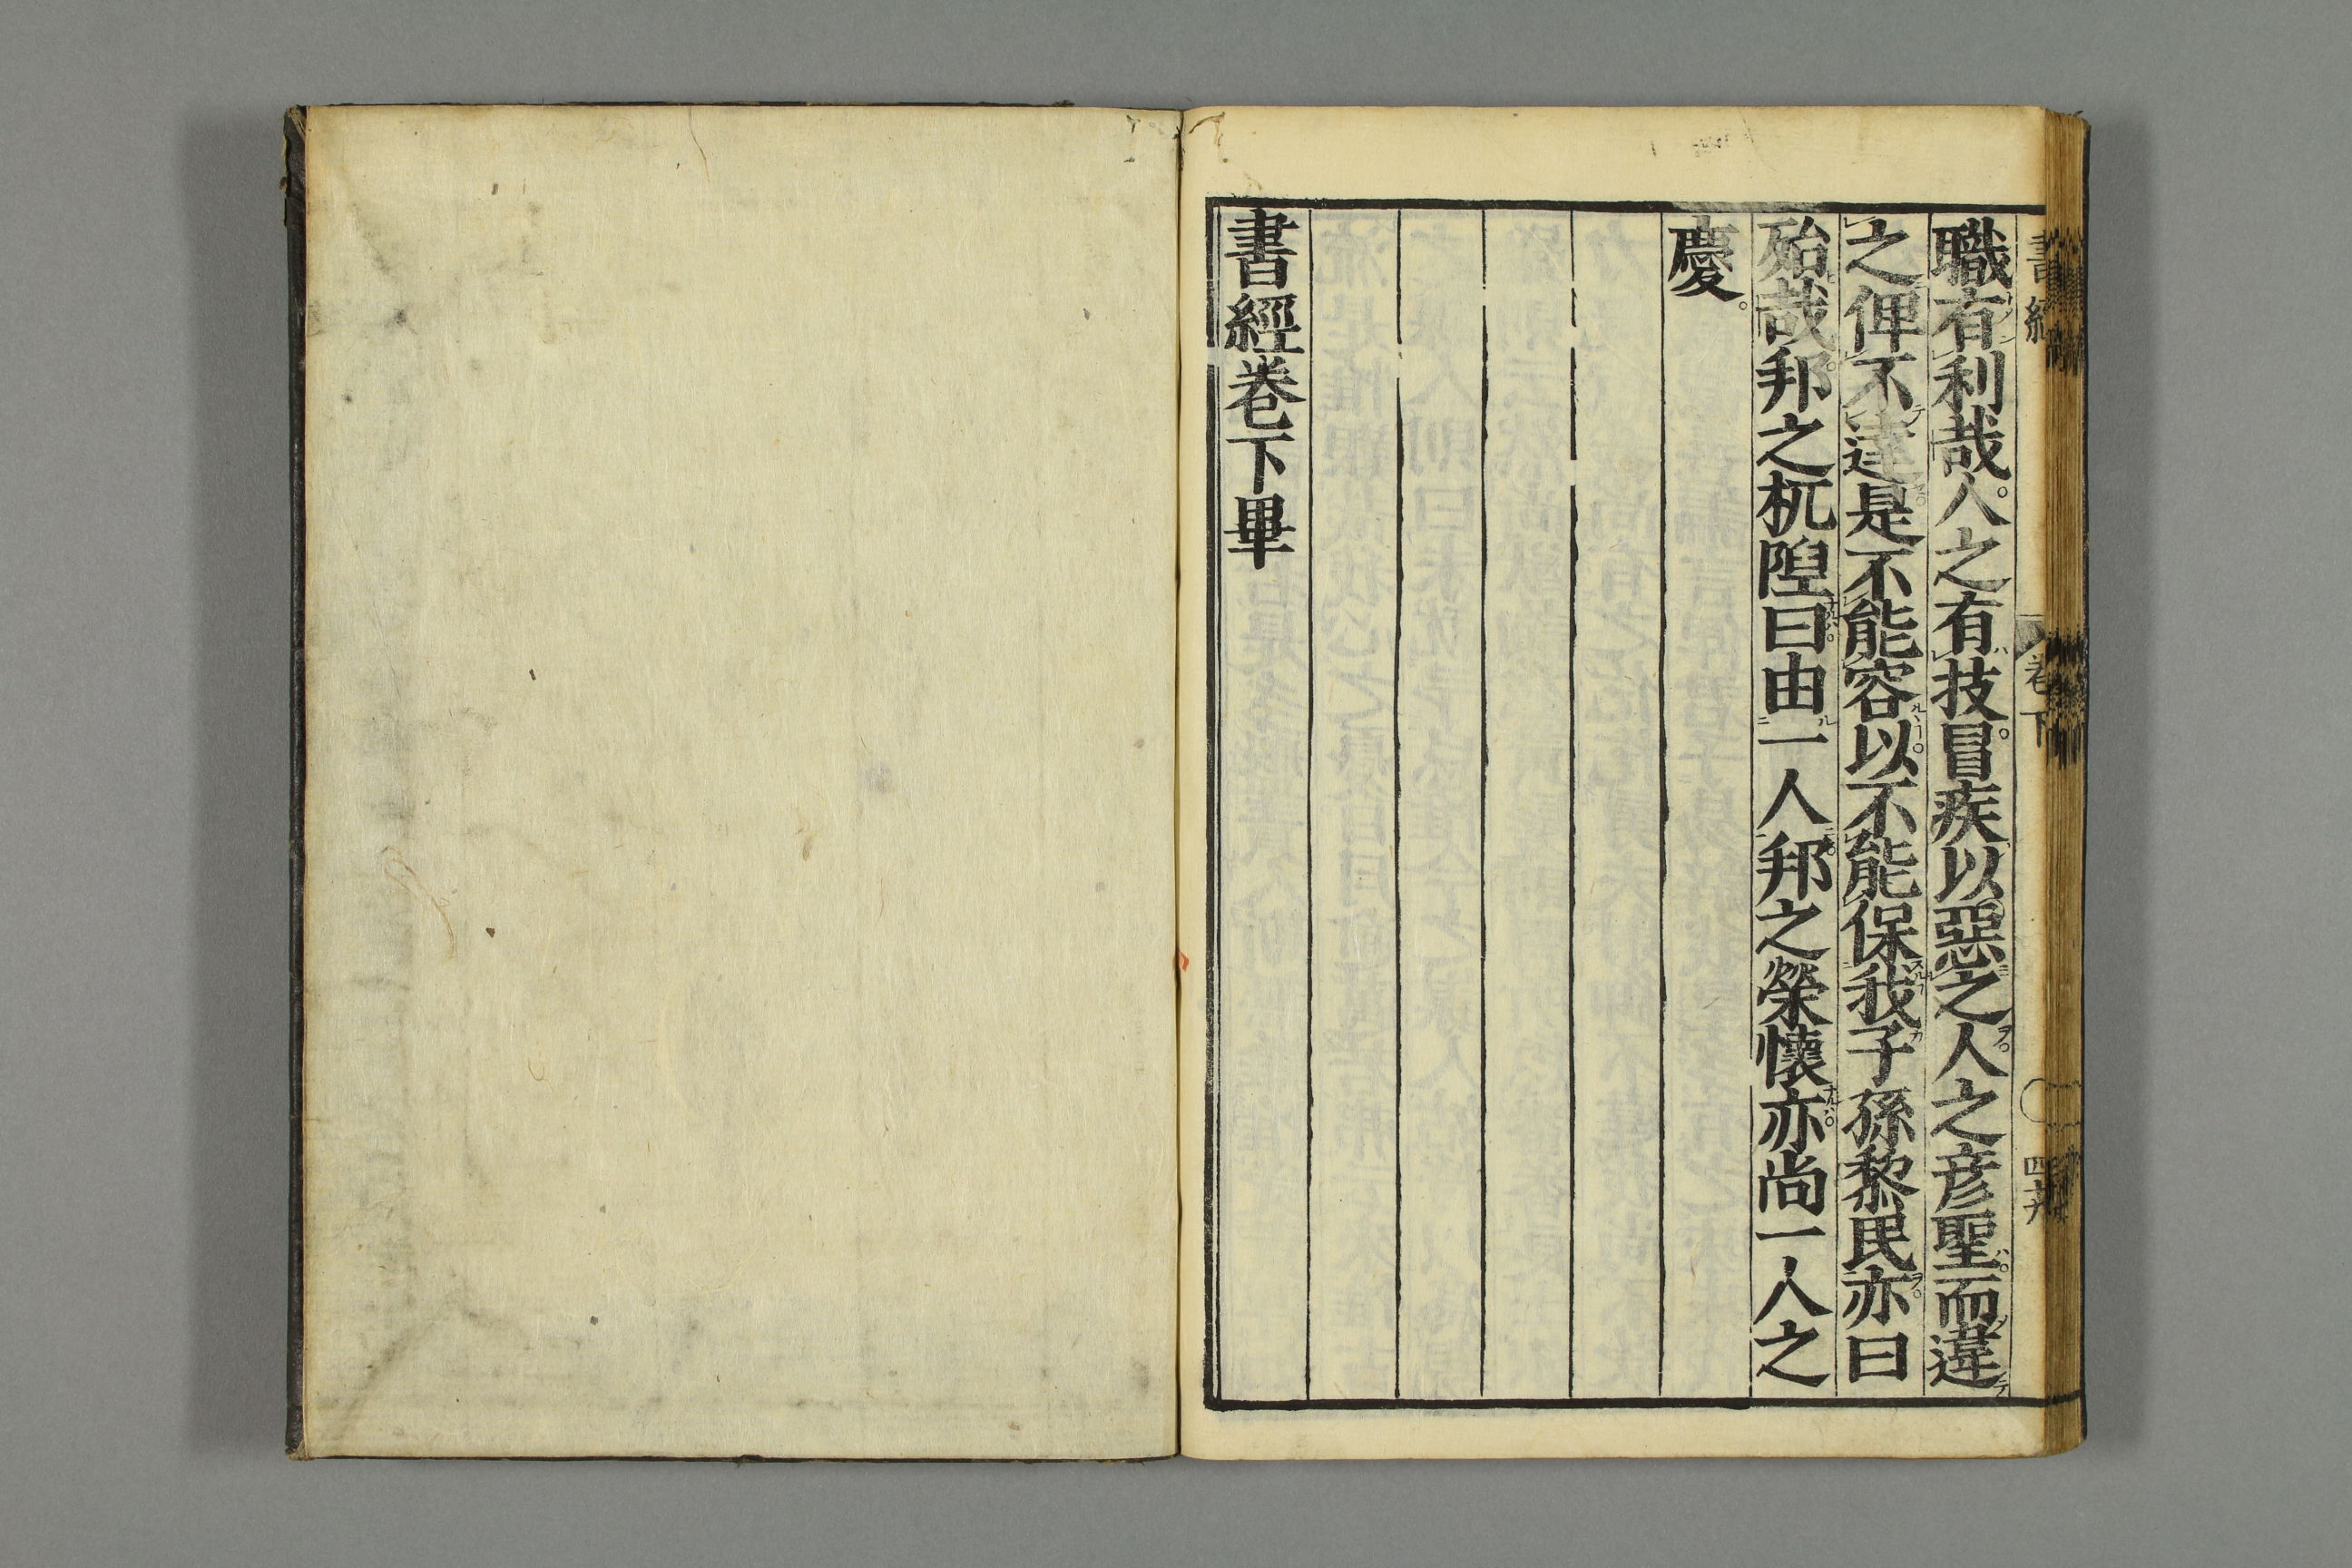 職有利哉人之有技冒疾以惡之人之彦聖而違
之俾不達是不能容以不能保我子孫黎民亦曰
殆哉邦之杌隉曰由一人邦之榮懷亦尚一人之
慶
書經卷下畢
書經
卷下